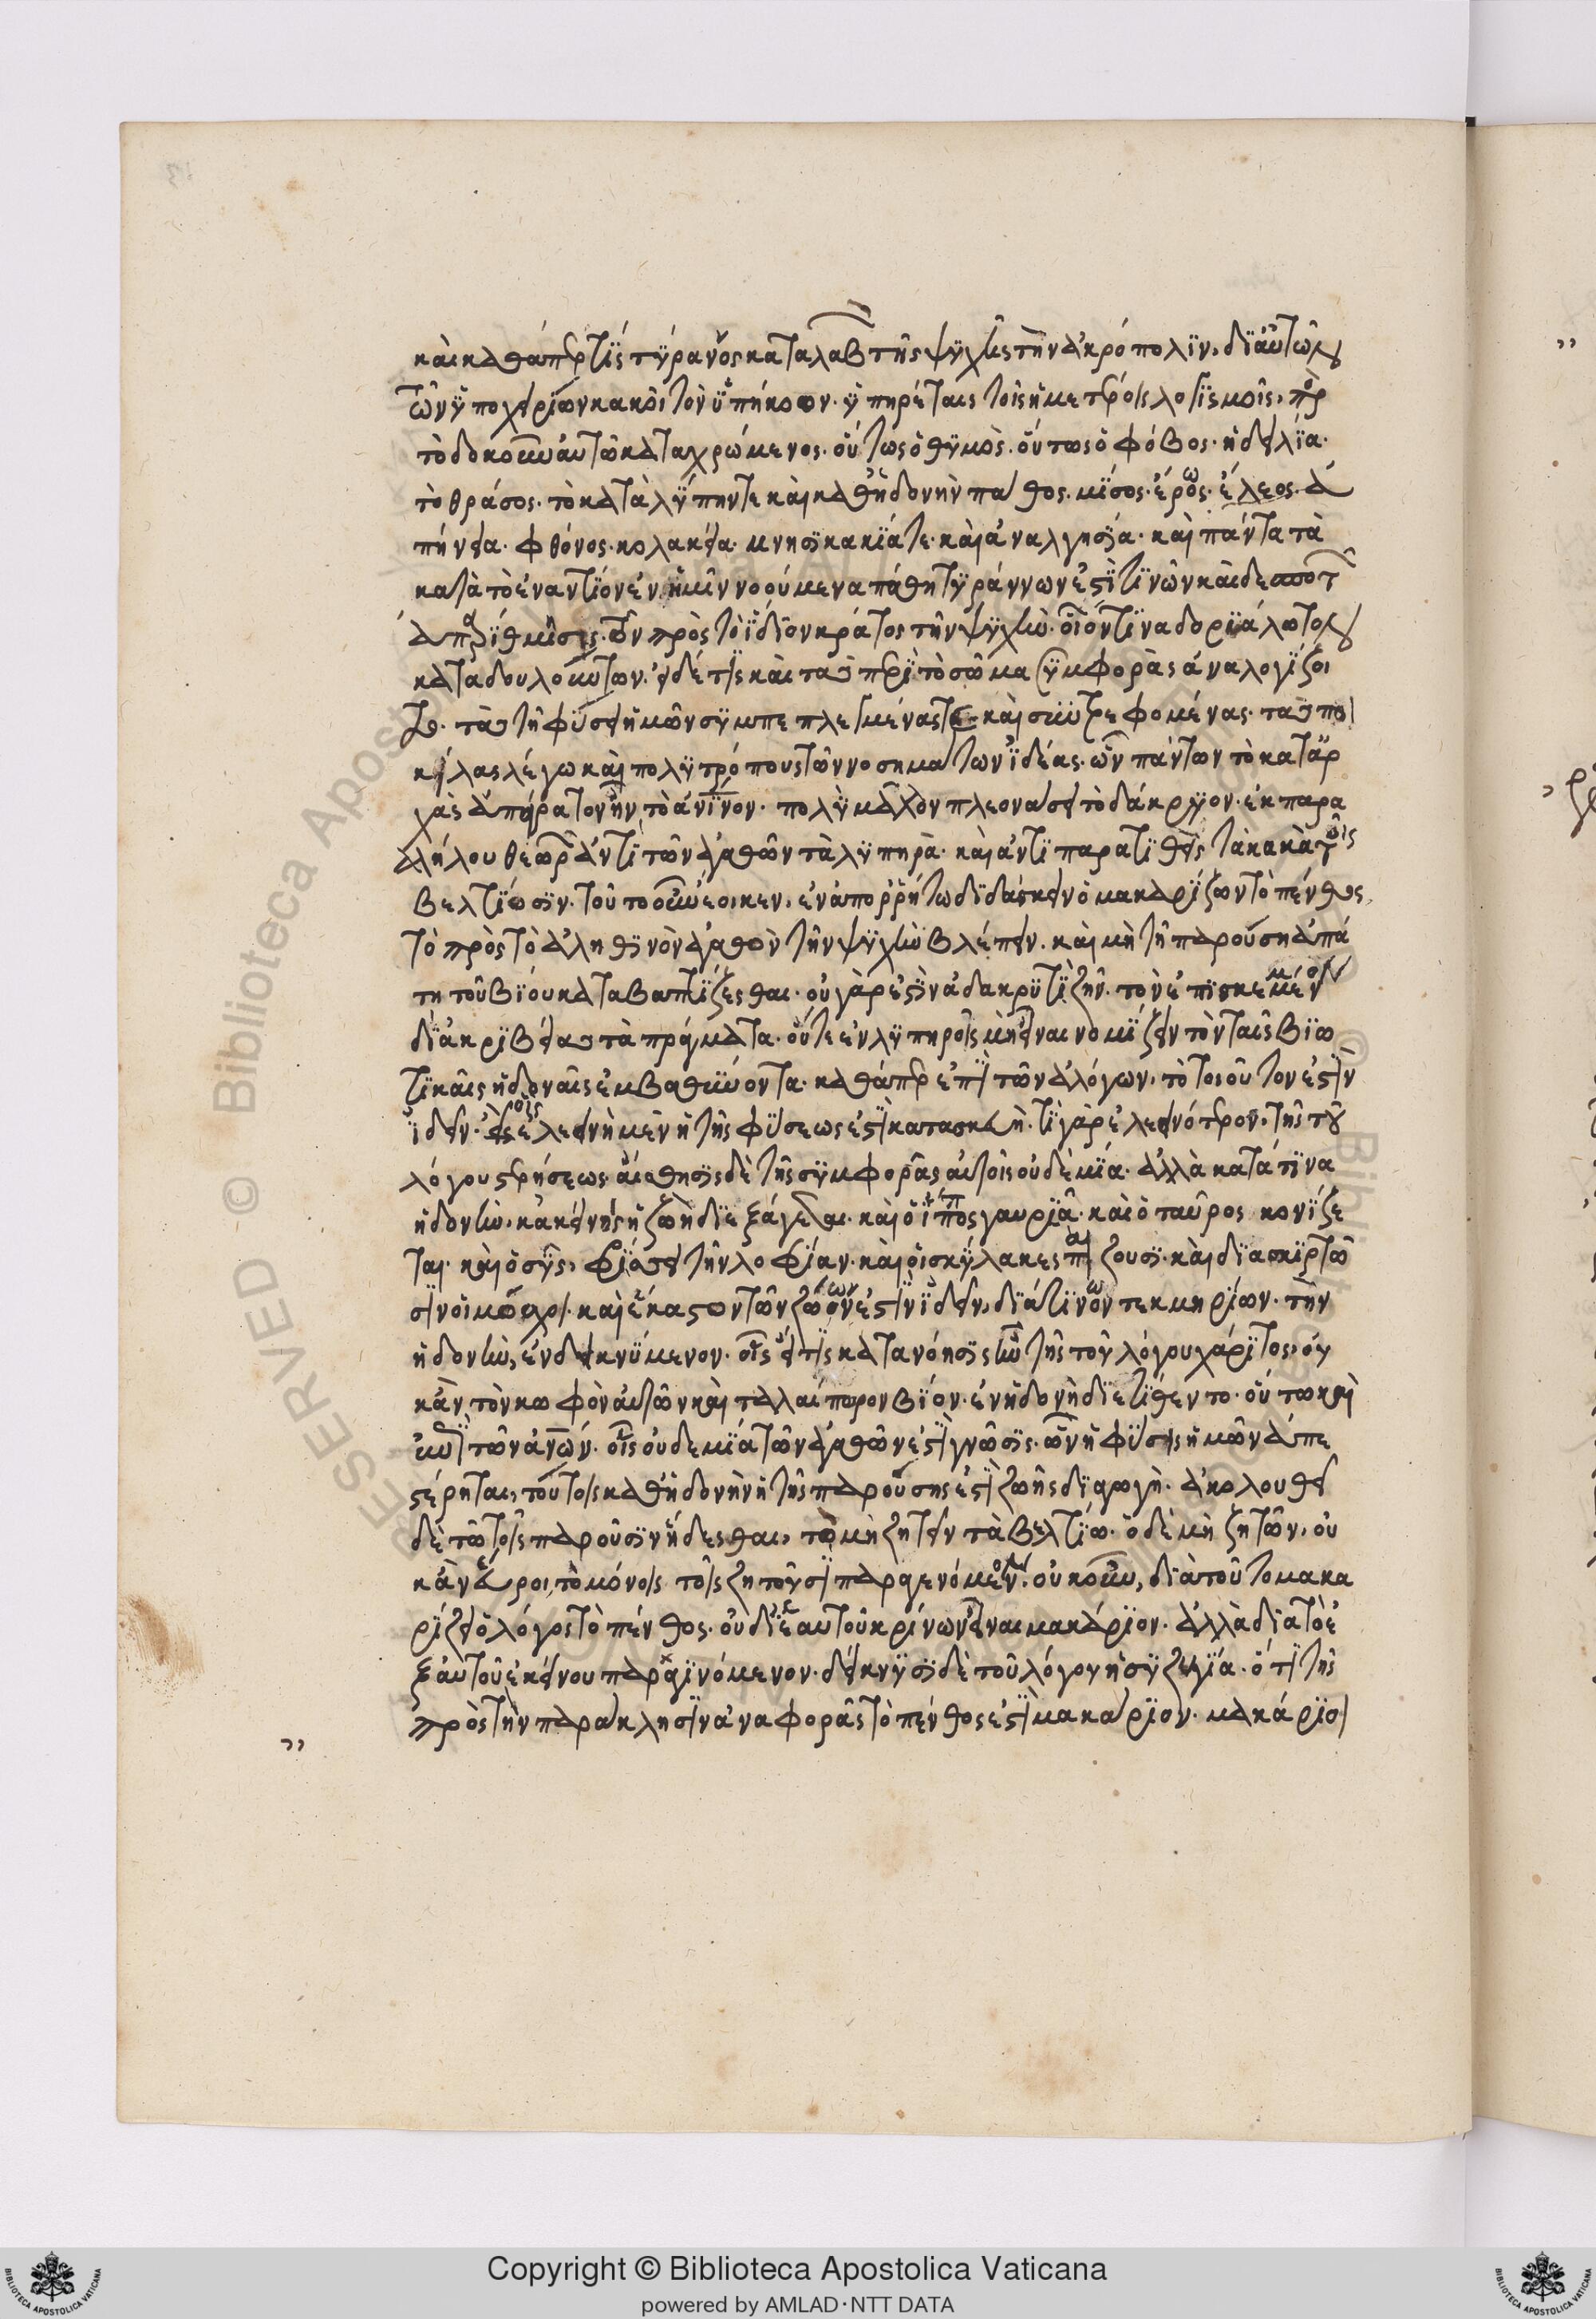 καὶ καθάπερ τὶς τύραννος καταλαβὼν τῆς ψυχῆς τὴν ἀκρόπολιν, δι' αὐτῶν
τῶν ὑποχειρίων κακοῖ τὸν ὑπήκοον. ὑπηρέταις τοῖς ἡμετέροις λογισμοῖς, πρὸς
τὸ δοκοῦν αὐτῶ καταχρώμενος. οὕτως ὁ θυμὸς. οὕτως ὁ φόβος. ἡ δειλία.
τὸ θράσος. τὸ κατὰ λύπην τε καὶ καθ' ἡδονὴν πάθος. μῖσος. ἔρως. ἔλεος. ἀ
πήνεια. φθόνος. κολακεία. μνησικακία τε. καὶ ἀναλγησία. καὶ πάντα τὰ
κατὰ τὸ ἐναντίον ἐν ἡμῖν νοούμενα πάθη τυράννων ἐστὶ τινῶν καὶ δεσποτῶν
ἀπαρίθμησις. τῶν πρὸς τὸ ἴδιον κράτος τὴν ψυχὴν. οἷόν τινα δοριάλωτον
καταδουλούντων. εἰ δέ τις καὶ τὰς περὶ τὸ σῶμα συμφορὰς ἀναλογίζοι
το. τὰς τῆ φύσει ἡμῶν συμπεπλεγμένας τε καὶ συντρεφομένας. τὰς ποι
κίλας λέγω καὶ πολυτρόπους τῶν νοσημάτων ἰδέας. ὧν πάντων τὸ κατ' ἀρ
χὰς ἀπείρατον ἦν τὸ ἀνινον. πολὺ μᾶλλον πλεονάσει τὸ δάκρυον. ἐκ παρα
λλήλου θεωρῶν ἀντὶ τῶν ἀγαθῶν τὰ λυπηρὰ. καὶ ἀντιπαρατιθεὶς τὰ κακὰ τοῖς
βελτίωσιν. τοῦτο οὖν ἔοικεν, ἐν ἀπορρήτω διδάσκειν ὁ μακαρίζων τὸ πένθος,
τὸ πρὸς τὸ ἀληθινὸν ἀγαθὸν τὴν ψυχὴν βλέπειν. καὶ μὴ τῆ παρούση ἀπά
τη τοῦ βίου καταβαπτίζεσθαι. οὐ γὰρ ἐστὶν ἀδακρυτὶ ζῆν. τὸν ἐπεσκεμμένον
δι' ἀκριβείας τὰ πράγματα. οὔτε ἐν λυπηροῖς μὴ εἶναι νομίζειν τὸν ταῖς βιω
τικαῖς ἡδοναῖς ἐμβαθύνοντα. καθάπερ ἐπὶ τῶν ἀλόγων, τὸ τοιοῦτον ἐστὶν
ἰδεῖν. οἷς ἐλεεινὴ μὲν ἡ τῆς φύσεως ἐστὶ κατασκευὴ. τί γὰρ ἐλεεινότερον, τῆς τοῦ
λόγου στερήσεως. αἴσθησις δὲ τῆς συμφορᾶς αὐτοῖς οὐδὲ μία. ἀλλὰ κατά τινα
ἡδονὴν, κἀκείνης ἡ ζωὴ διεξάγεται. καὶ ὁ ἵππος γαυριᾶ. καὶ ὁ ταῦρος κονίζε
ται. καὶ ὁ σῦς, φρίσσει τὴν λοφιάν. καὶ οἱ σκύλακες παίζουσι. καὶ διασκιρτῶ
σιν οἱ μόσχοι. καὶ ἕκαστον τῶν ζώων ἐστὶν ἰδεῖν, διά τινων τεκμηρίων. τὴν
ἡδονὴν, ἐνδεικνύμενον. οἷς εἴ τις κατανόησις ἦν τῆς τοῦ λόγου χάριτος, οὐ
κ ἂν τὸν κωφὸν αὐτῶν καὶ ταλαίπωρον βίον. ἐν ἡδονῆ διετίθεντο. οὕτω καὶ
ἐπὶ τῶν ἀνων. οἷς οὐδεμία τῶν ἀγαθῶν ἐστὶ γνῶσις. ὧν ἡ φύσις ἡμῶν ἀπε
στέρηται, τούτοις καθ' ἡδονὴν ἡ τῆς παρούσης ἐστὶ ζωῆς διαγωγὴ. ἀκολουθεῖ
δὲ τῶ τοῖς παροῦσιν ἥδεσθαι, τὸ μὴ ζητεῖν τὰ βελτίω. ὁ δὲ μὴ ζητῶν, οὐ
κ ἂν εὕροι, τὸ μόνοις τοῖς ζητοῦσι παραγενόμενον. οὐκοῦν, διὰ τοῦτο μακα
ρίζει ὁ λόγος τὸ πένθος. οὐ δι' ἑαυτοῦ κρίνων εἶναι μακάριον. ἀλλὰ διὰ τὸ ἐ
ξ αὐτοῦ ἐκείνου παραγινόμενον. δείκνυσι δὲ τοῦ λόγου ἡ συζυγία. ὅτι τῆς
πρὸς τὴν παράκλησιν ἀναφορᾶς τὸ πένθος ἐστὶ μακάριον. μακάριοι